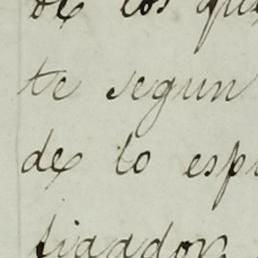 de los qu
te segun
de lo esp
fiaador